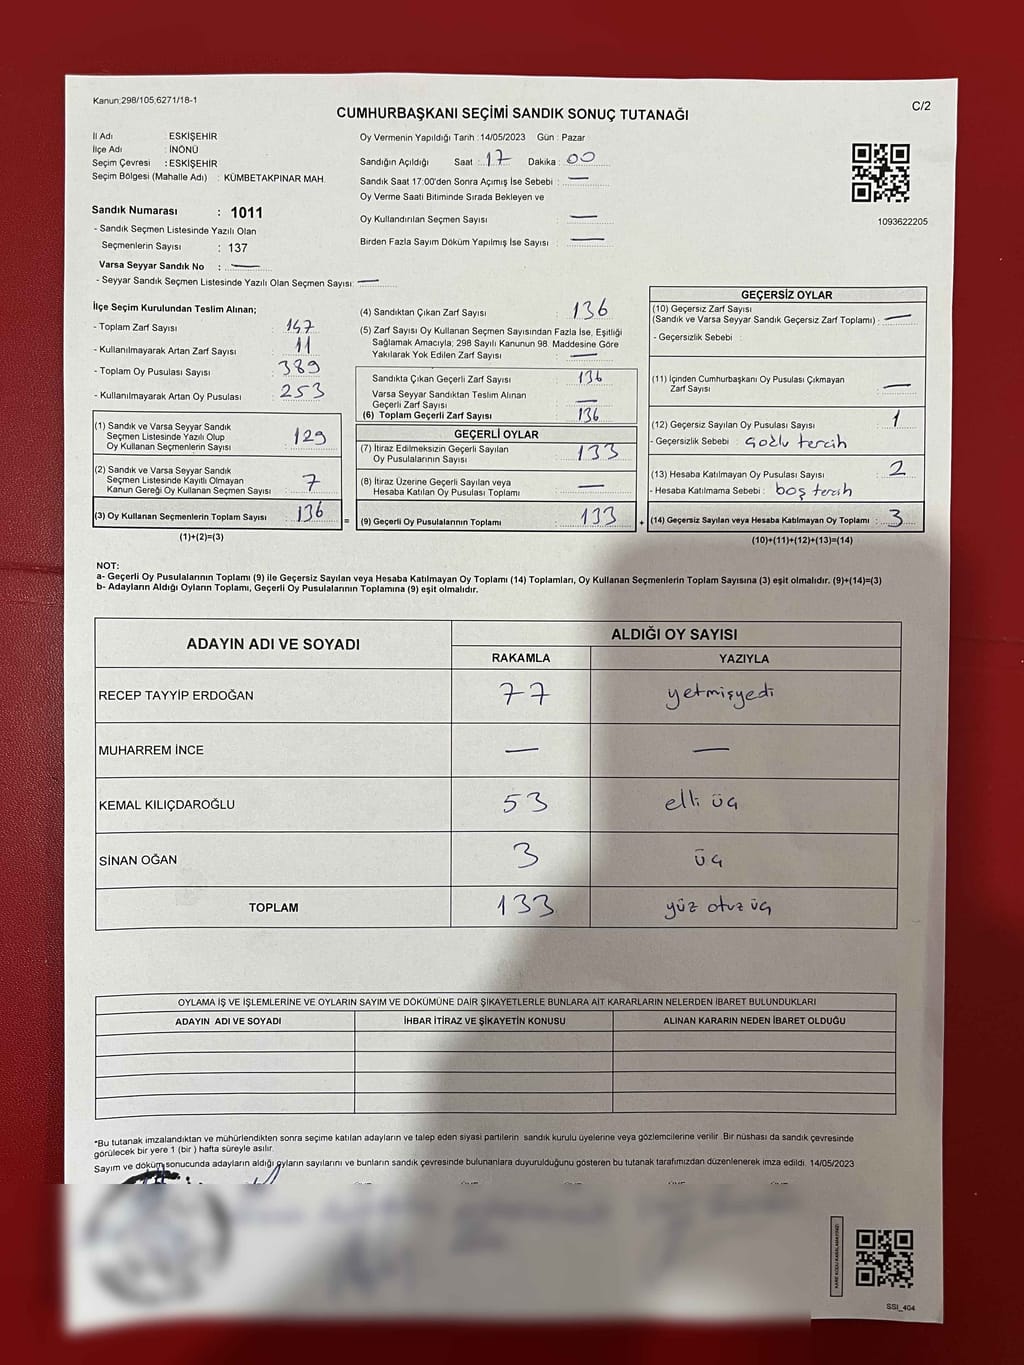 Kanun;298/105;6271/18-1
C/2
CUMHURBAŞKANI SEÇİMİ SANDIK SONUÇ TUTANAĞI
İl Adı : ESKİŞEHİR
İlçe Adı : İNÖNÜ
Seçim Çevresi : ESKİŞEHİR
Seçim Bölgesi (Mahalle Adı) : KÜMBETAKPINAR MAH.
Sandık Numarası : 1011
- Sandık Seçmen Listesinde Yazılı Olan
Seçmenlerin Sayısı : 137
Varsa Seyyar Sandık No : —
- Seyyar Sandık Seçmen Listesinde Yazılı Olan Seçmen Sayısı: —
Oy Vermenin Yapıldığı Tarih :14/05/2023 Gün : Pazar
Sandığın Açıldığı Saat : 17 Dakika : 00
Sandık Saat 17:00'den Sonra Açımış İse Sebebi : —
Oy Verme Saati Bitiminde Sırada Bekleyen ve
Oy Kullandırılan Seçmen Sayısı : —
Birden Fazla Sayım Döküm Yapılmış İse Sayısı : —
1093622205
İlçe Seçim Kurulundan Teslim Alınan;
- Toplam Zarf Sayısı : 147
- Kullanılmayarak Artan Zarf Sayısı : 11
- Toplam Oy Pusulası Sayısı : 389
- Kullanılmayarak Artan Oy Pusulası : 253
(1) Sandık ve Varsa Seyyar Sandık
Seçmen Listesinde Yazılı Olup
Oy Kullanan Seçmenlerin Sayısı : 129
(2) Sandık ve Varsa Seyyar Sandık
Seçmen Listesinde Kayıtlı Olmayan
Kanun Gereği Oy Kullanan Seçmen Sayısı : 7
(3) Oy Kullanan Seçmenlerin Toplam Sayısı : 136
(1)+(2)=(3)
=
(4) Sandıktan Çıkan Zarf Sayısı : 136
(5) Zarf Sayısı Oy Kullanan Seçmen Sayısından Fazla İse, Eşitliği
Sağlamak Amacıyla; 298 Sayılı Kanunun 98. Maddesine Göre
Yakılarak Yok Edilen Zarf Sayısı : —
Sandıkta Çıkan Geçerli Zarf Sayısı : 136
Varsa Seyyar Sandıktan Teslim Alınan
Geçerli Zarf Sayısı : —
(6) Toplam Geçerli Zarf Sayısı : 136
GEÇERLİ OYLAR
(7) İtiraz Edilmeksizin Geçerli Sayılan
Oy Pusulalarının Sayısı : 133
(8) İtiraz Üzerine Geçerli Sayılan veya
Hesaba Katılan Oy Pusulası Toplamı : —
(9) Geçerli Oy Pusulalarının Toplamı : 133
+
GEÇERSİZ OYLAR
(10) Geçersiz Zarf Sayısı
(Sandık ve Varsa Seyyar Sandık Geçersiz Zarf Toplamı) : —
- Geçersizlik Sebebi :
(11) İçinden Cumhurbaşkanı Oy Pusulası Çıkmayan
Zarf Sayısı : —
(12) Geçersiz Sayılan Oy Pusulası Sayısı : 1
- Geçersizlik Sebebi : Çoğlu tercih
(13) Hesaba Katılmayan Oy Pusulası Sayısı : 2
- Hesaba Katılmama Sebebi : boş tercih
(14) Geçersiz Sayılan veya Hesaba Katılmayan Oy Toplamı : 3
(10)+(11)+(12)+(13)=(14)
NOT:
a- Geçerli Oy Pusulalarının Toplamı (9) ile Geçersiz Sayılan veya Hesaba Katılmayan Oy Toplamı (14) Toplamları, Oy Kullanan Seçmenlerin Toplam Sayısına (3) eşit olmalıdır. (9)+(14)=(3)
b- Adayların Aldığı Oyların Toplamı, Geçerli Oy Pusulalarının Toplamına (9) eşit olmalıdır.
ADAYIN ADI VE SOYADI
ALDIĞI OY SAYISI
RAKAMLA YAZIYLA
RECEP TAYYİP ERDOĞAN 77 yetmişyedi
MUHARREM İNCE — —
KEMAL KILIÇDAROĞLU 53 elli üç
SİNAN OĞAN 3 üç
TOPLAM 133 yüz otuz üç
OYLAMA İŞ VE İŞLEMLERİNE VE OYLARIN SAYIM VE DÖKÜMÜNE DAİR ŞİKAYETLERLE BUNLARA AİT KARARLARIN NELERDEN İBARET BULUNDUKLARI
ADAYIN ADI VE SOYADI İHBAR İTİRAZ VE ŞİKAYETİN KONUSU ALINAN KARARIN NEDEN İBARET OLDUĞU
*Bu tutanak imzalandıktan ve mühürlendikten sonra seçime katılan adayların ve talep eden siyasi partilerin sandık kurulu üyelerine veya gözlemcilerine verilir. Bir nüshası da sandık çevresinde
görülecek bir yere 1 (bir ) hafta süreyle asılır.
Sayım ve döküm sonucunda adayların aldığı oyların sayılarını ve bunların sandık çevresinde bulunanlara duyurulduğunu gösteren bu tutanak tarafımızdan düzenlenerek imza edildi. 14/05/2023
SSI_404